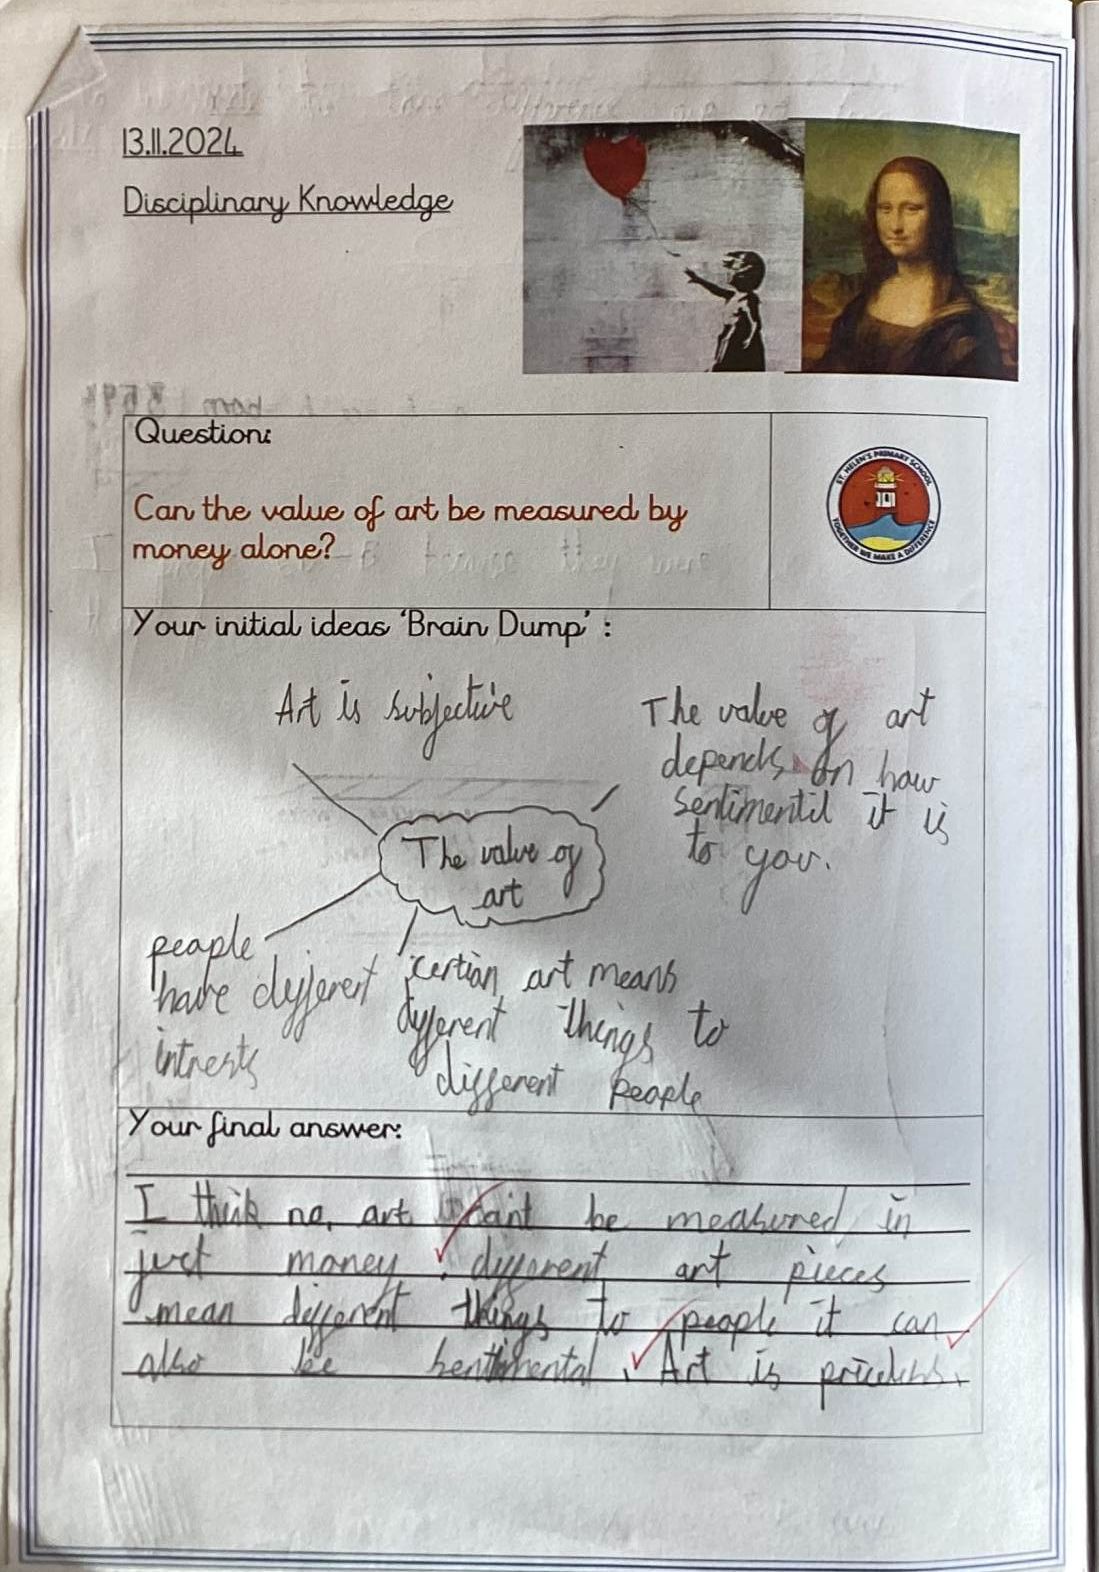 13.11.2024
Disciplinary Knowledge
Question:
Can the value of art be measured by
money alone?
ST. HELEN'S PRIMARY SCHOOL
TOGETHER WE MAKE A DIFFERENCE
Your initial ideas 'Brain Dump' :
Art is subjective
The value of art
depends on how
sentimentil it is
to you.
The value of
art
peaple
have different
intrests
certian art means
different things to
different people
Your final answer:
I think no, art can't be measured in
just money. different art pieces
mean different things to people it can
also be sentimental. Art is priceless.